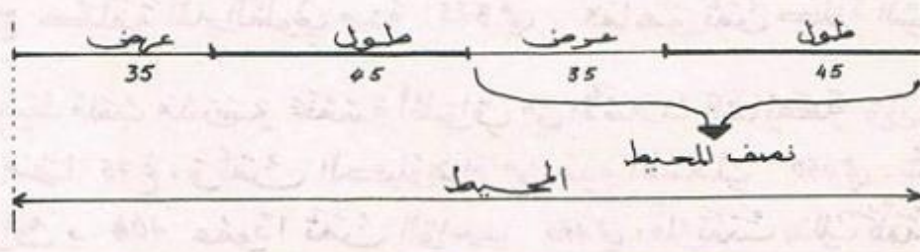 طول عرض طول عرض
45 35 45 35
نصف المحيط
المحيط